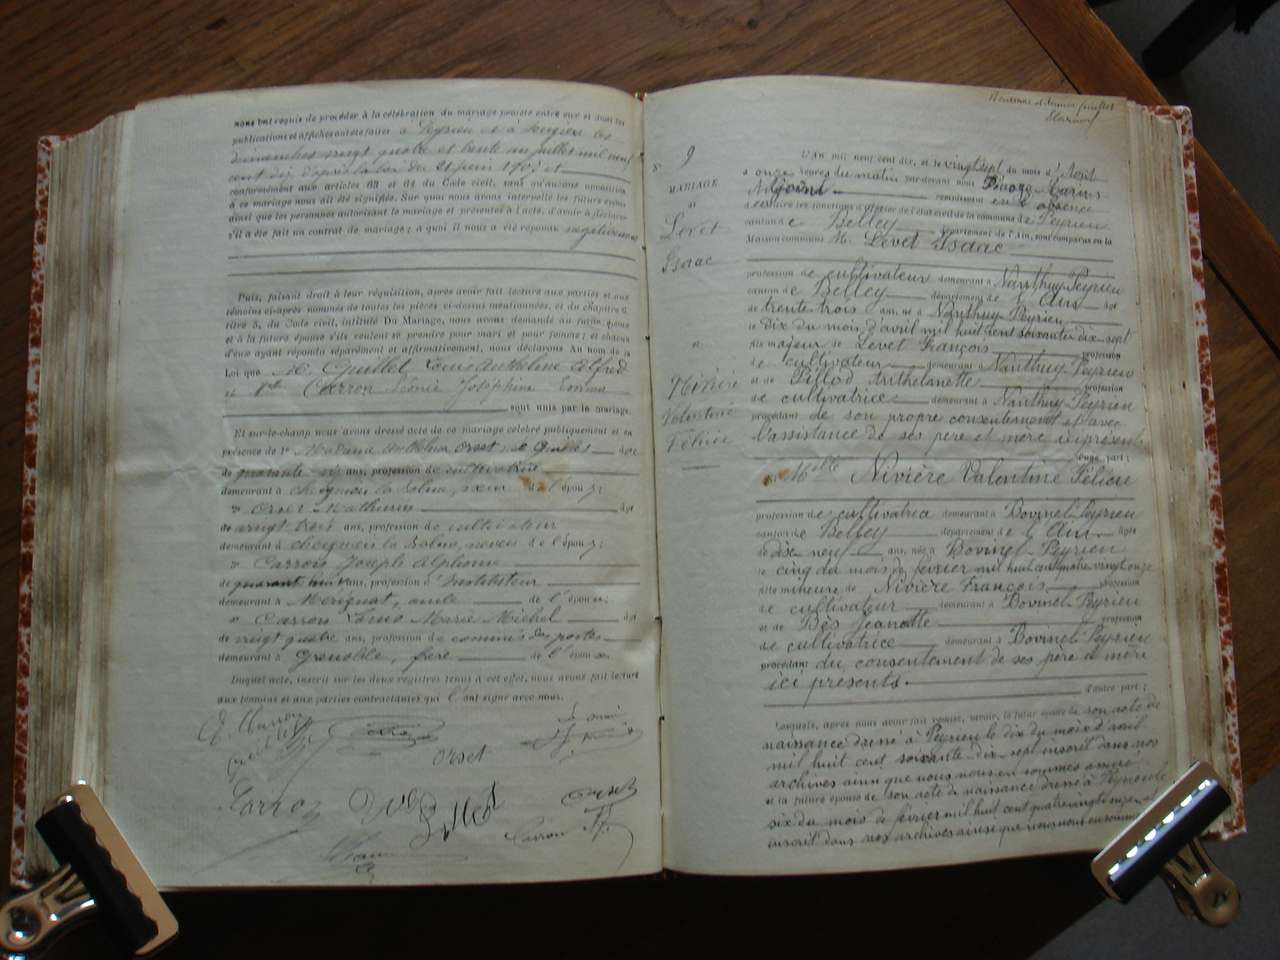 nous ont requis de procéder à la célébration du mariage projeté entre eux et dont les
publications et affiches ont été faites à Peyrieu et à
dimanches vingt quatre et trente un juillet mil neuf
cent dix d'après la loi du 21 juin 1907 et
conformément aux articles 63 et 64 du Code civil, sans qu'aucune opposition
à ce mariage nous ait été signifiée. Sur quoi nous avons interpellé les futurs époux
ainsi que les personnes autorisant le mariage et présentes à l'acte, d'avoir à déclarer
s'il a été fait un contrat de mariage ; à quoi il nous a été répondu négativement
Puis, faisant droit à leur réquisition, après avoir fait lecture aux parties et aux
témoins ci-après nommés de toutes les pièces ci-dessus mentionnées, et du Chapitre 6
titre 5, du Code civil, intitulé Du Mariage, nous avons demandé au futur époux
et à la future épouse s'ils veulent se prendre pour mari et pour femme ; et chacun
d'eux ayant répondu séparément et affirmativement, nous déclarons Au nom de la
Loi que M. Guillot Louis Anthelme Alfred
et Mlle Carron Joséphine Emma
sont unis par le mariage.
Et sur-le-champ nous avons dressé acte de ce mariage célébré publiquement et en
présence de 1° Madame Orset née âgée
de quarante six ans, profession de cultivatrice
demeurant à la Balme, sœur de l'époux ;
2° Orset Mathurin âgé
de vingt trois ans, profession de cultivateur
demeurant à la Balme, neveu de l'époux ;
3° Carron Joseph Alphonse
de quarante huit ans, profession d'Instituteur
demeurant à Mérignat, oncle de l'épouse ;
4° Carron Louis Marie Michel âgé
de vingt quatre ans, profession de commis des postes
demeurant à Grenoble, frère de l'épouse
lequel acte, inscrit sur les deux registres tenus à cet effet, nous avons fait lecture
aux témoins et aux parties contractantes qui l'ont signé avec nous.
Orset
Carron
N°
9
MARIAGE
Levet
Isaac
Nivière
Valentine
Félicie
L'An mil neuf cent dix, et le vingt sept du mois d'Août
à onze heures du matin par-devant nous Marius
Adjoint remplissant en absence
d'exercer les fonctions d'officier de l'état civil de la commune de Peyrieu
canton de Belley département de l'Ain, sont comparus en la
Maison commune M. Levet Isaac
profession de cultivateur demeurant à Nanthuy Peyrieu
canton de Belley département de l'Ain âgé
de trente trois ans, né à Nanthuy Peyrieu
le Dix du mois d'avril mil huit cent soixante dix sept
fils majeur de Levet François profession
de cultivateur demeurant à Nanthuy Peyrieu
et de Pillod Anthelmette profession
de cultivatrice demeurant à Nanthuy Peyrieu
procédant de son propre consentement et avec
l'assistance de ses père et mère ci présents
d'une part ;
et Mlle Nivière Valentine Félicie
profession de cultivatrice demeurant à Bovinel Peyrieu
canton de Belley département de l'Ain âgée
de dix neuf ans, née à Bovinel Peyrieu
le cinq du mois de février mil huit cent quatre vingt onze
fille mineure de Nivière François profession
de cultivateur demeurant à Bovinel Peyrieu
et de Bès Jeanette profession
de cultivatrice demeurant à Bovinel Peyrieu
procédant du consentement de ses père et mère
ici présents.
d'autre part ;
Lesquels, après nous avoir fait remise, savoir, le futur époux de son acte de
naissance dressé à Peyrieu le dix du mois d'avril
mil huit cent soixante dix sept inscrit dans nos
archives ainsi que nous nous en sommes assuré
et la future épouse de son acte de naissance dressé à Peyrieu le
six du mois de février mil huit cent quatre vingt onze et
inscrit dans nos archives ainsi que nous nous en sommes